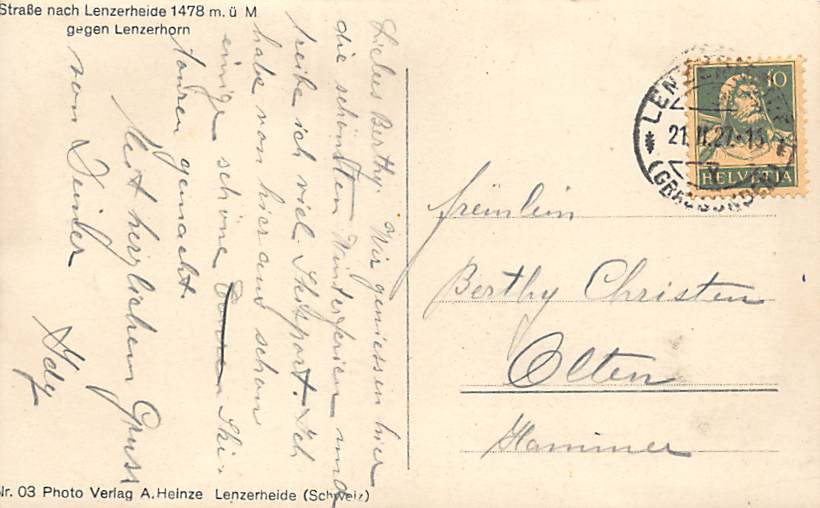 Straße nach Lenzerheide 1478 m. ü M
gegen Lenzerhorn
Liebes Berthy Wir geniessen hier
die schönsten Winterferien und
treibe ich viel Skisport. Ich
habe von hier aus schon
einige schöne Ski-
touren gemacht.
Mit herzlichem Gruss
von Deiner
Idy
10
HELVETIA
LENZERHEIDE
(GRAUBÜNDEN)
Fräulein
Berthy Christen
Olten
Hammer
Nr. 03 Photo Verlag A. Heinze Lenzerheide (Schweiz)